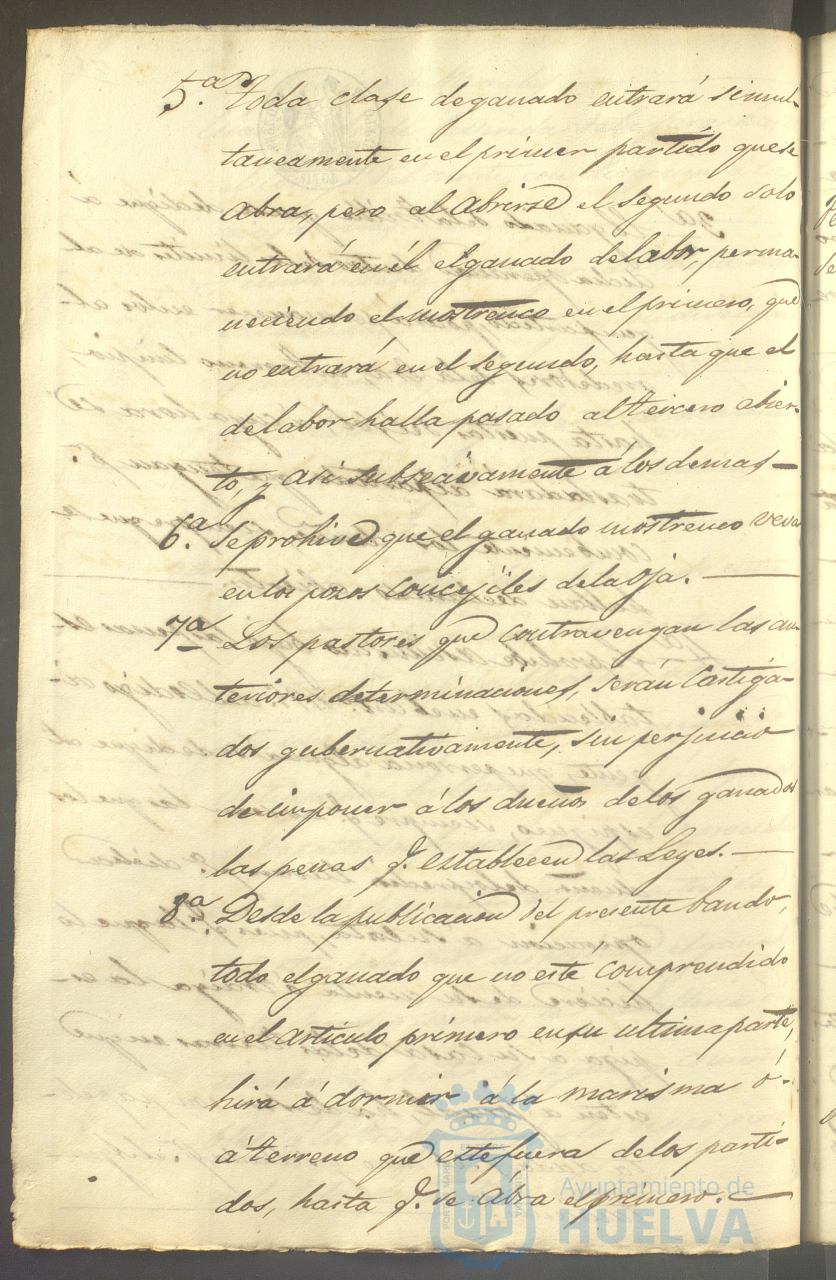 5.ª Toda clase de ganado entrará simul-
taneamente en el primer partido que se
abra, pero al abrirse el segundo solo
entrará en él el ganado de labor, perma-
neciendo el mostrenco en el primero, que
no entrará en el segundo, hasta que el
de labor halla pasado al tercero abier-
to, y asi subsecivamente á los demas —
6.ª Se prohive que el ganado mostrenco veva
en los pozos concejiles de la Oja. —
7ª Los pastores que contravengan las an-
teriores determinaciones, serán castiga-
dos gubernativamente, sin perjuicio
de imponer á los dueños de los ganados
las penas q.e establecen las Leyes. —
8.ª Desde la publicacion del presente bando,
todo el ganado que no esté comprendido
en el articulo primero en su ultima parte,
hirá á dormir á la marisma ó
á terreno que esté fuera de los parti-
dos, hasta q.e se abra el primero. —
Ayuntamiento de
HUELVA